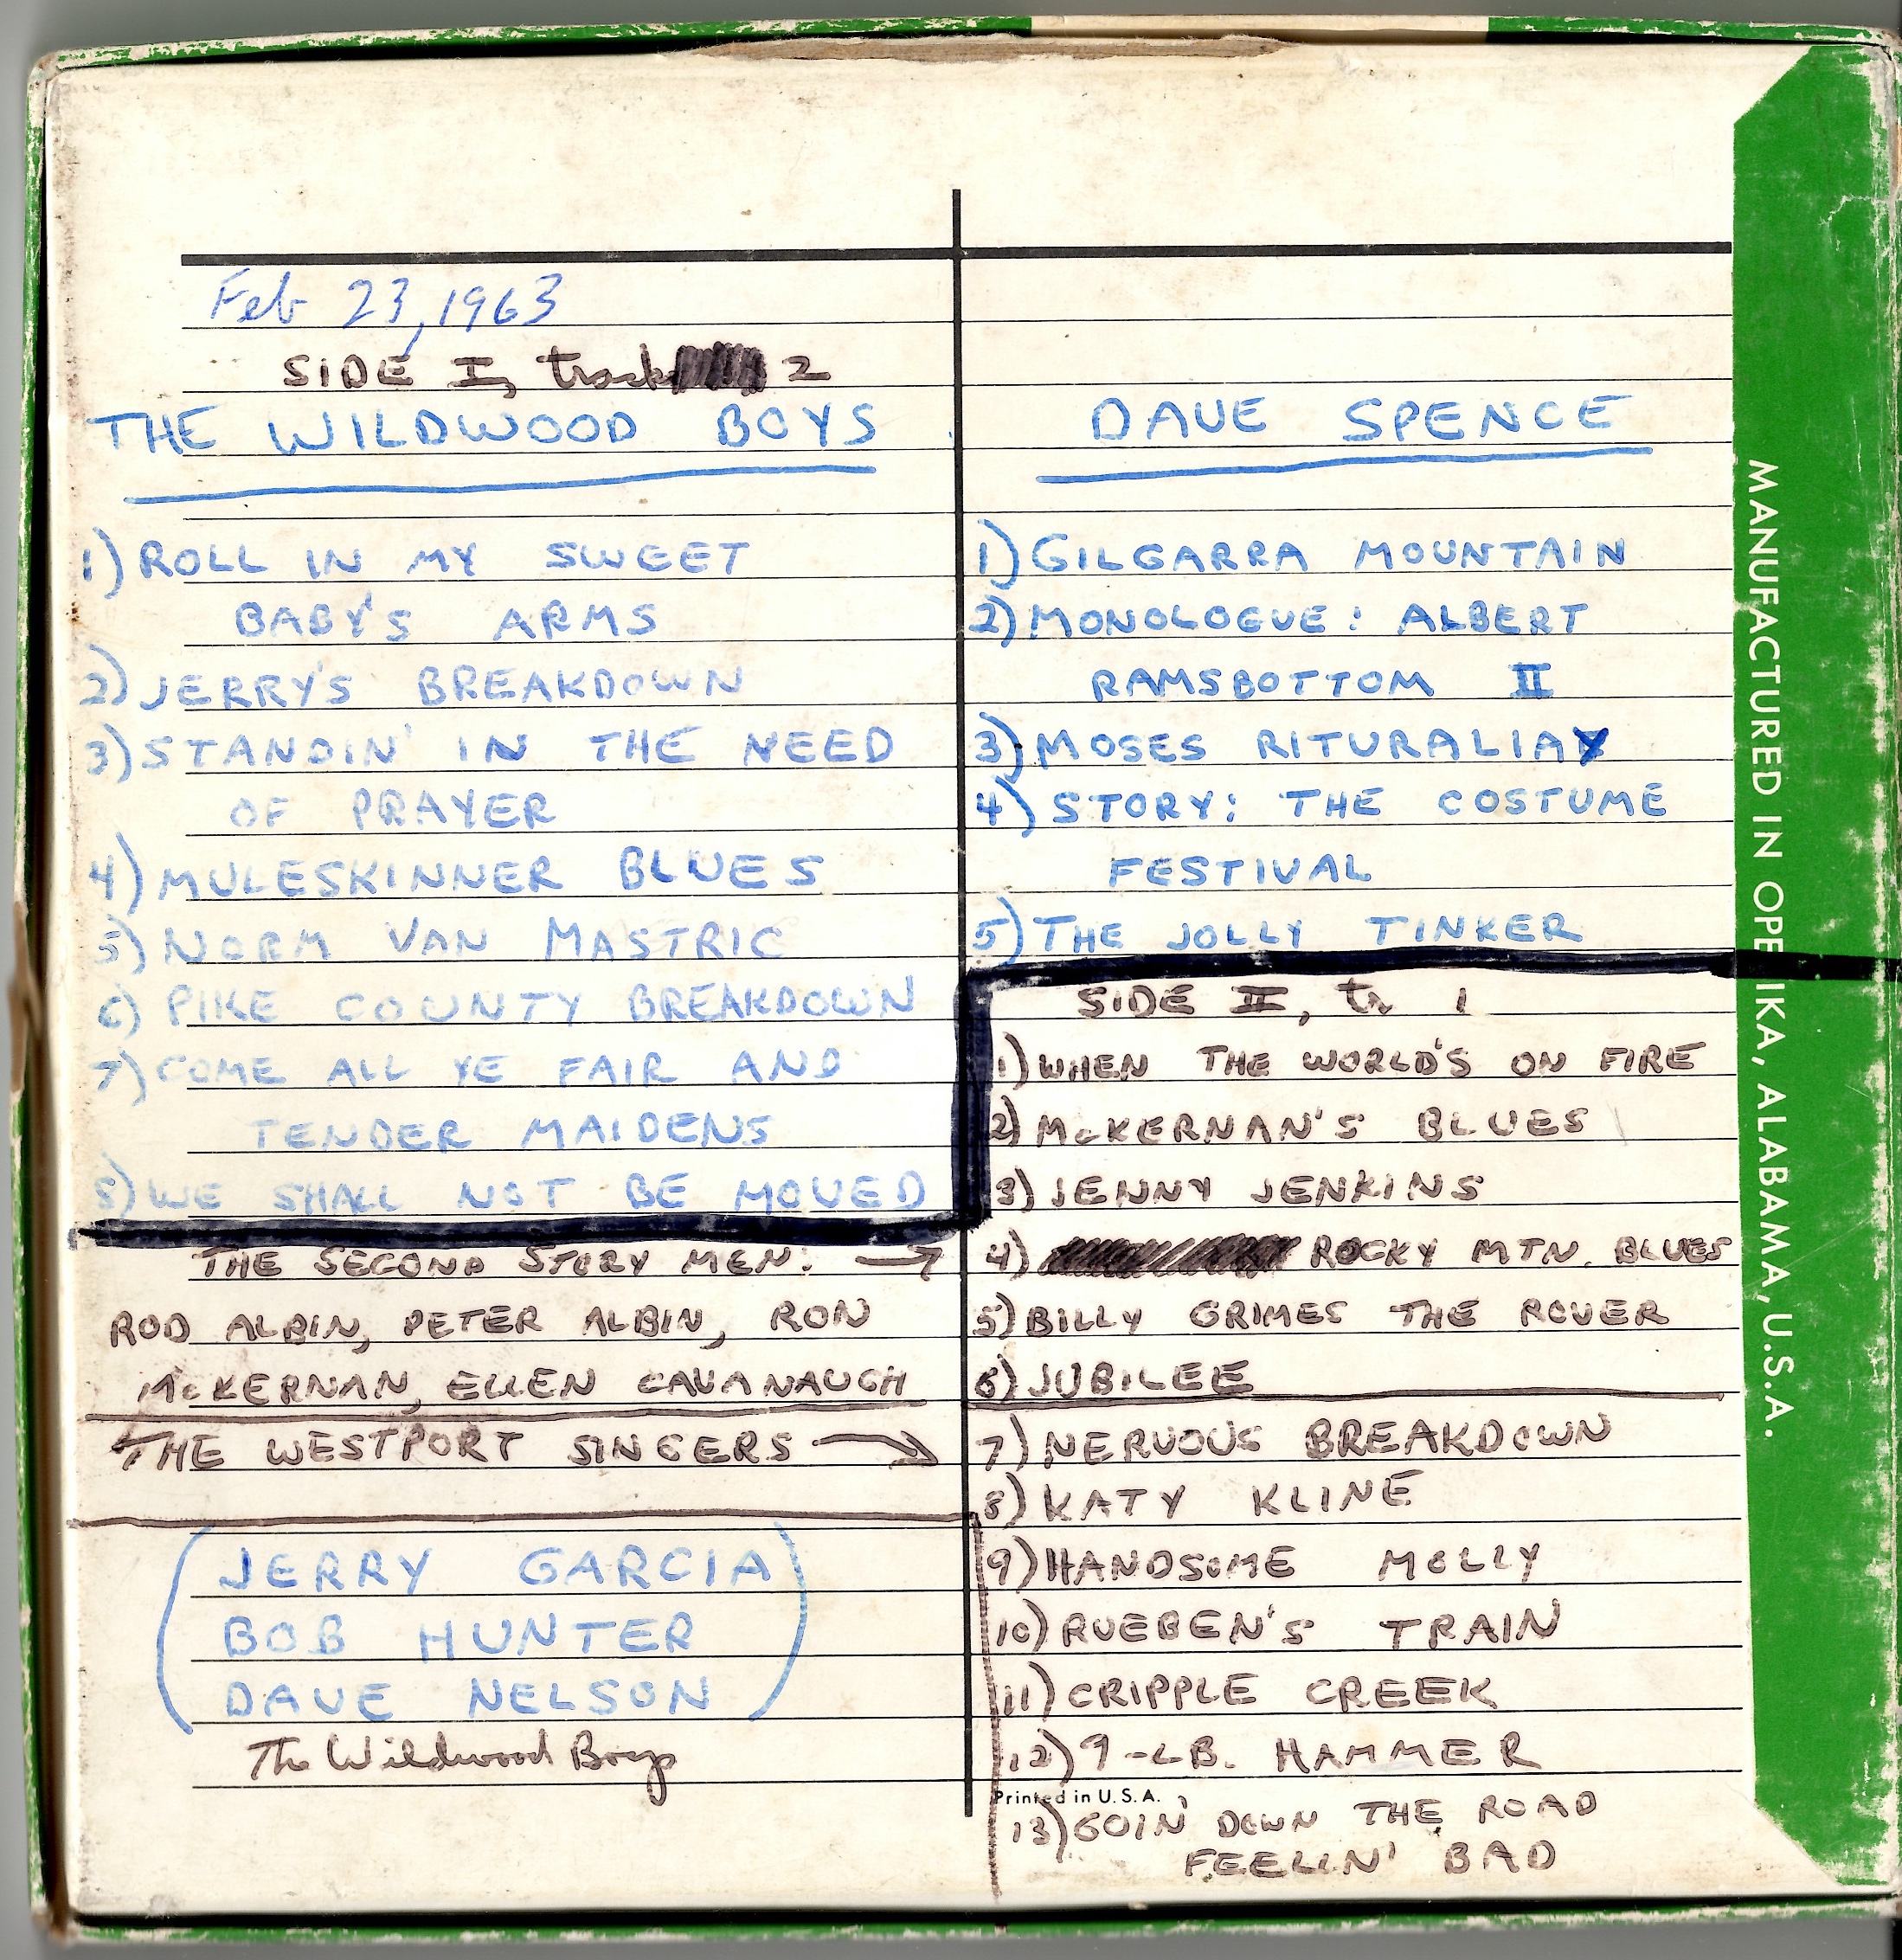 Feb 23, 1963
SIDE I, track 2
THE WILDWOOD BOYS
1) ROLL IN MY SWEET
BABY'S ARMS
2) JERRY'S BREAKDOWN
3) STANDIN' IN THE NEED
OF PRAYER
4) MULESKINNER BLUES
5) NORM VAN MASTRIC
6) PIKE COUNTY BREAKDOWN
7) COME ALL YE FAIR AND
TENDER MAIDENS
8) WE SHALL NOT BE MOVED
THE SECOND STORY MEN: →
ROD ALBIN, PETER ALBIN, RON
McKERNAN, ELLEN CAVANAUGH
THE WESTPORT SINGERS →
(JERRY GARCIA
BOB HUNTER
DAVE NELSON)
The Wildwood Boys
DAVE SPENCE
1) GILGARRA MOUNTAIN
2) MONOLOGUE: ALBERT
RAMSBOTTOM II
3) MOSES RITURALIAY
4) STORY: THE COSTUME
FESTIVAL
5) THE JOLLY TINKER
SIDE II, tr 1
1) WHEN THE WORLD'S ON FIRE
2) McKERNAN'S BLUES
3) JENNY JENKINS
4) ROCKY MTN. BLUES
5) BILLY GRIMES THE ROVER
6) JUBILEE
7) NERVOUS BREAKDOWN
8) KATY KLINE
9) HANDSOME MOLLY
10) RUEBEN'S TRAIN
11) CRIPPLE CREEK
12) 9-LB. HAMMER
Printed in U.S.A.
13) GOIN' DOWN THE ROAD
FEELIN' BAD
MANUFACTURED IN OPELIKA, ALABAMA, U.S.A.